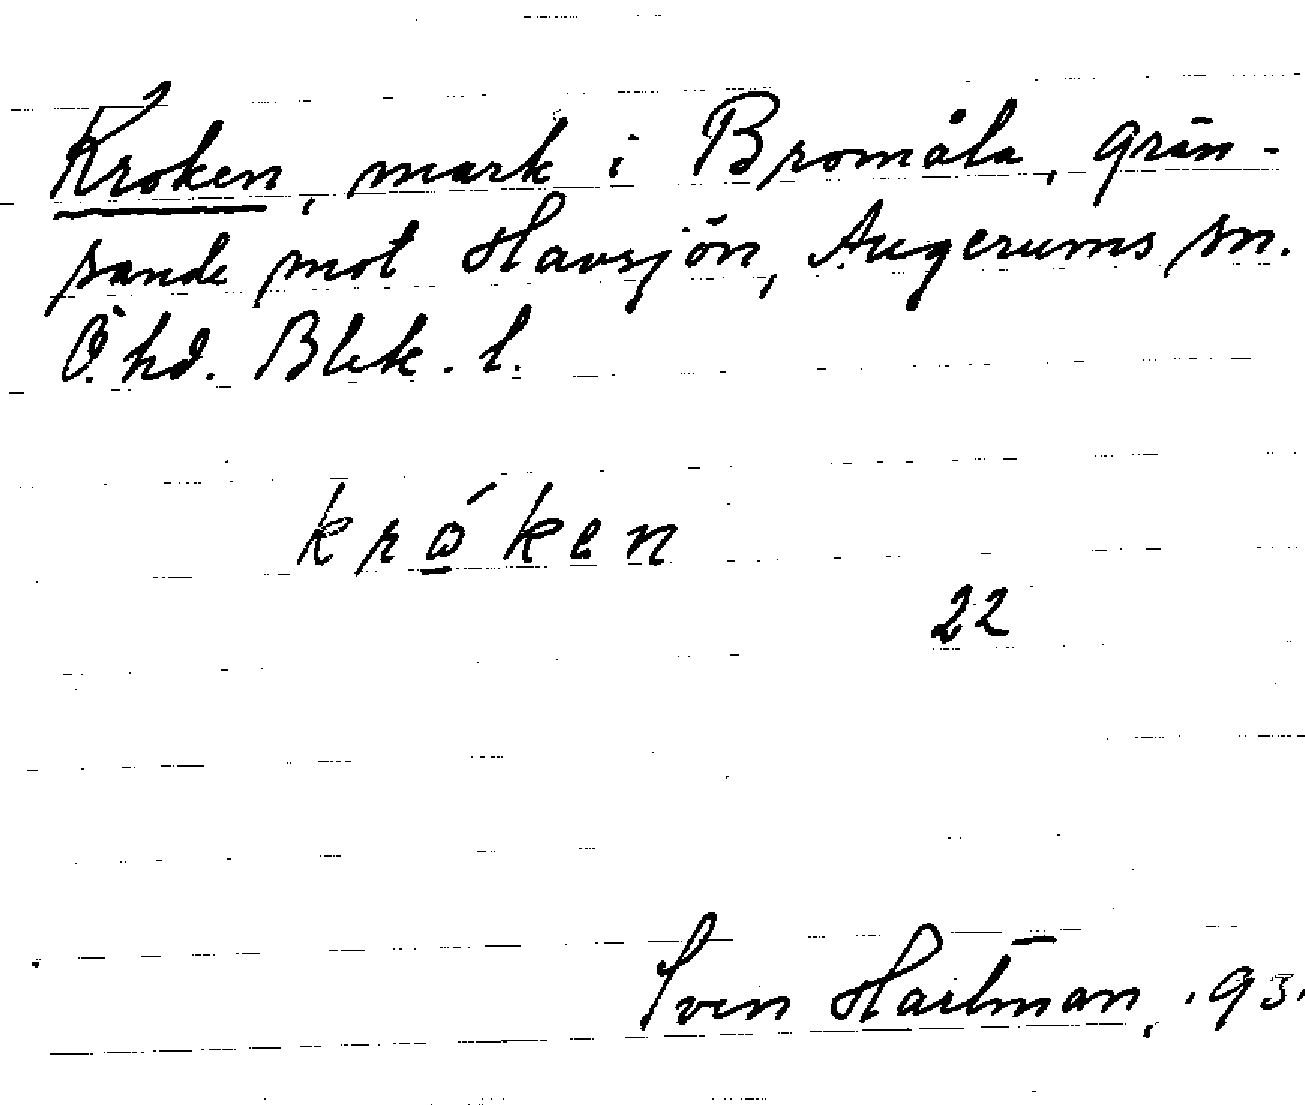 Kroken, mark i Bromåla, grän-
sande mot Havsjön, Augerums sn.
Ö. hd. Blek. l.
krώ̱ken
22
Sven Hartman, .93.